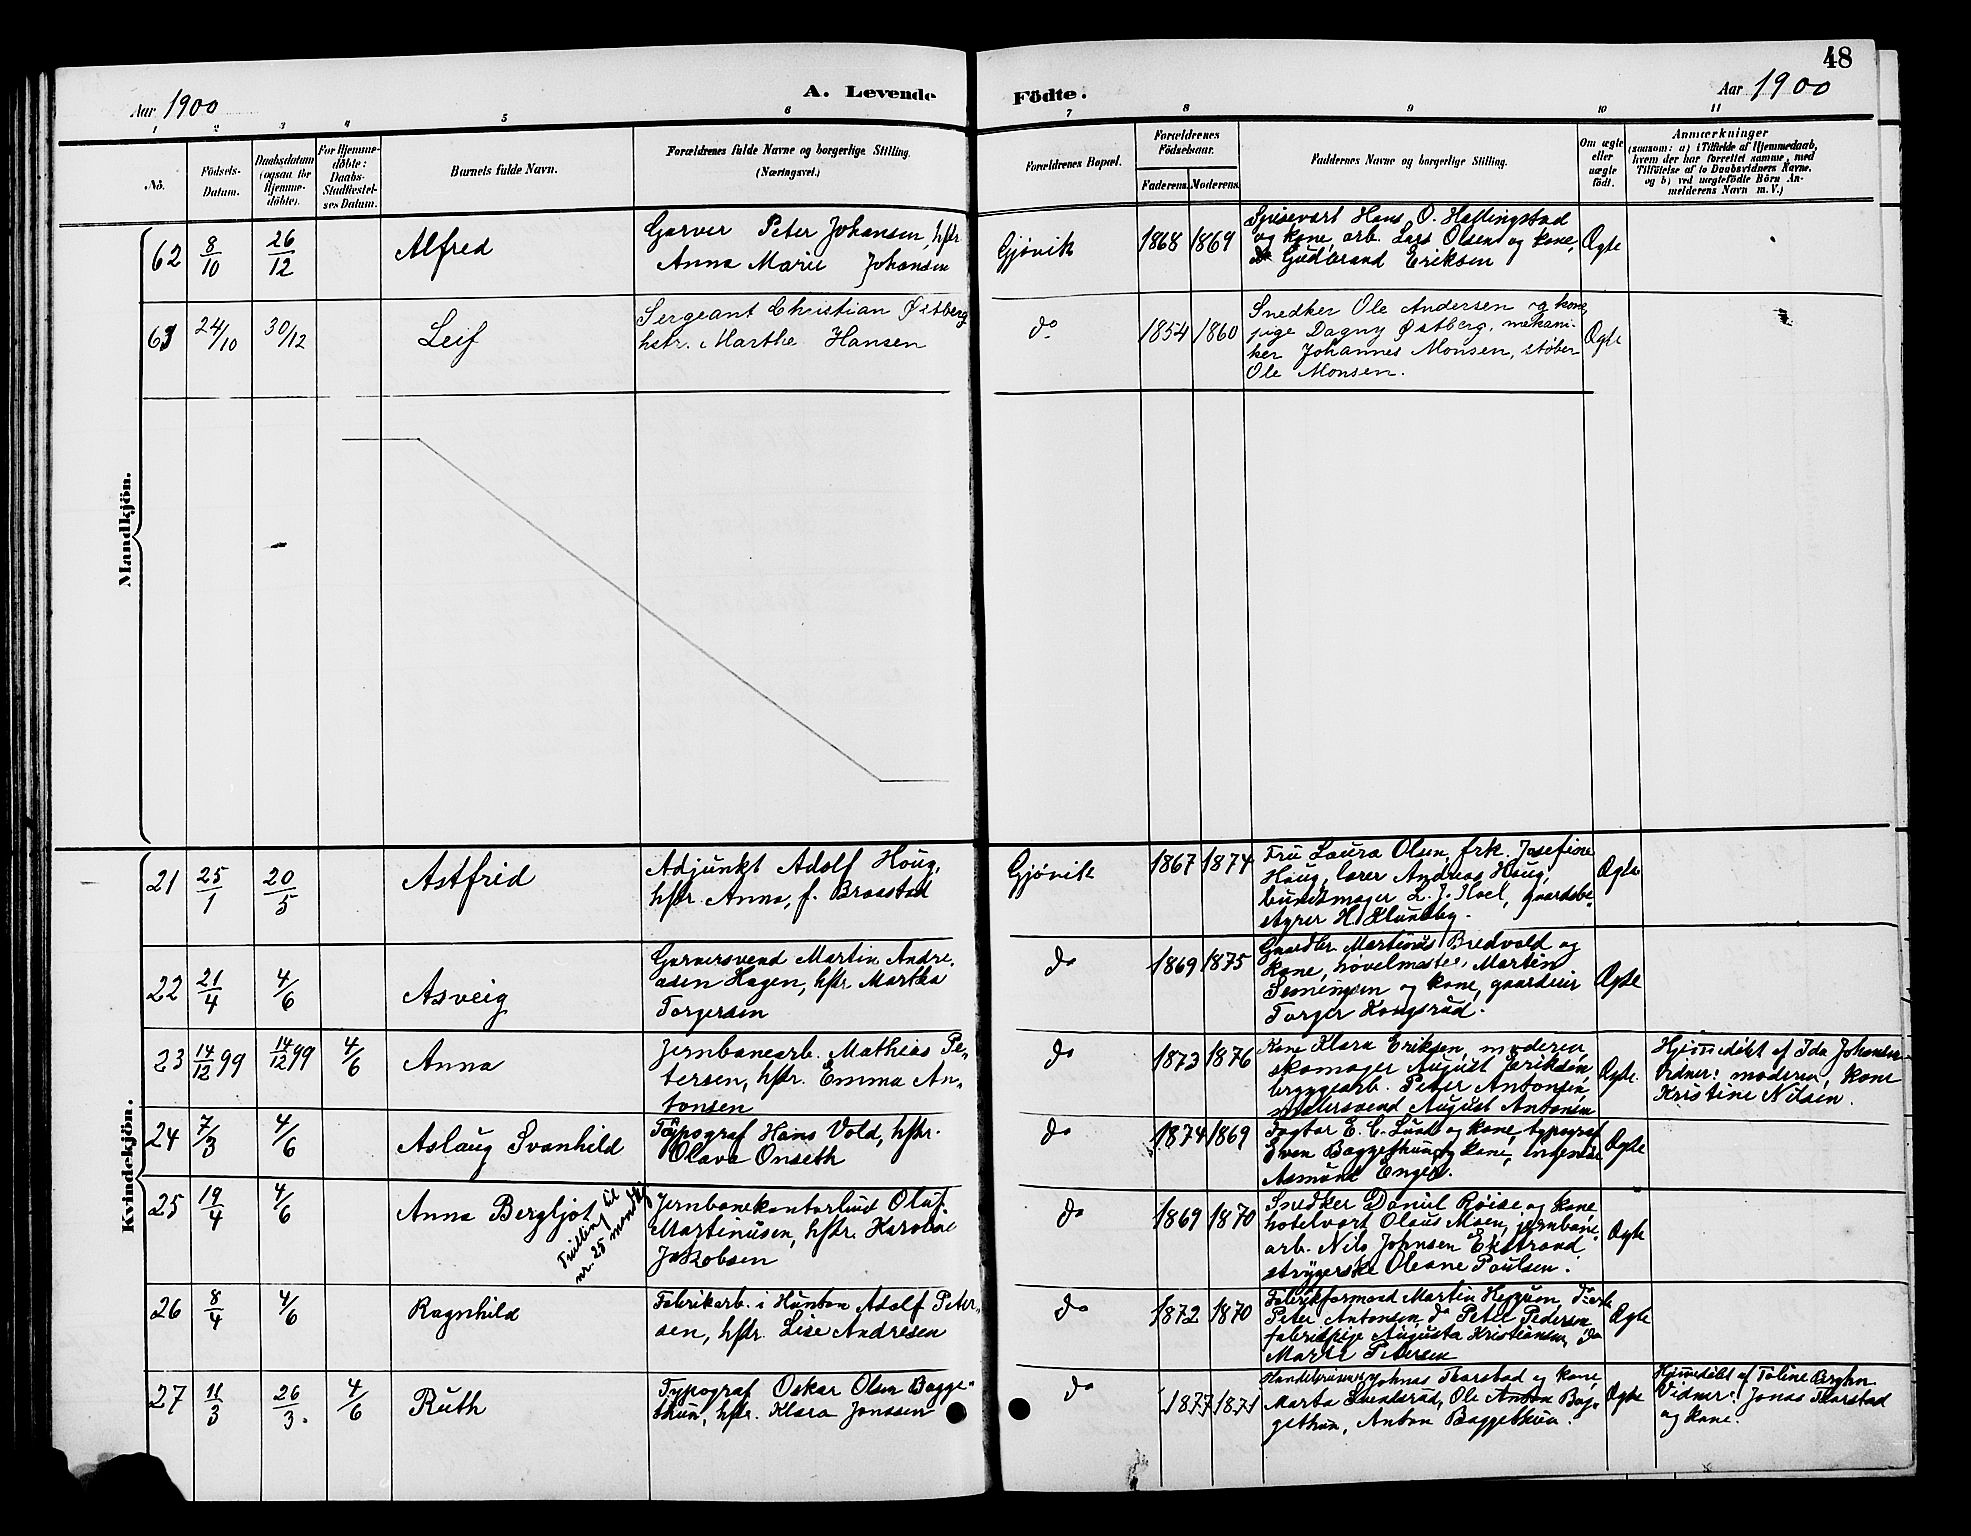 48
Aar 1900
A. Levende
Födte.
Aar 1900
1 2 3 4 5 6 7 8 9 10 11
No.
Födsels-
Datum.
Daabsdatum
(ogsaa for
Hjemme-
döbte).
For Hjemme-
döbte:
Daabs-
Stadfæstel-
ses Datum.
Barnets fulde Navn.
Forældrenes fulde Navne og borgerlige Stilling.
(Næringsvei.)
Forældrenes Bopæl.
Forældrenes
Födselsaar.
Faderens. Moderens.
Faddernes Navne og borgerlige Stilling.
Om ægte
eller
uægte
födt.
Anmærkninger
(saasom: a) i Tilfælde af Hjemmedaab,
hvem der har forrettet samme, med
Tilföielse af to Daabsvidners Navne,
og b) ved uægtefödte Börn An-
melderens Navn m. V.)
Mandkjön.
62 8/10 26/12 Alfred
Garver Peter Johansen, hstr.
Anna Marie Johansen
Gjøvik 1868 1869
Spisevært Hans O. Hallingstad
og kone, arb. Lars Olsen og kone,
do Gudbrand Eriksen
Ægte
63 24/10 30/12 Leif
Sergeant Christian Østberg
hstr. Marthe Hansen
do 1854 1860
Snedker Ole Andersen og kone,
pige Dagny Østberg, mekani-
ker Johannes Monsen, støber
Ole Monsen.
Ægte
Kvindekjön.
21 25/1 20/5 Astfrid
Adjunkt Adolf Houg,
hstr. Anna, f. Braastad
Gjøvik 1867 1874
Fru Laura Olsen, frk. Josefine
Houg, lærer Andreas Houg,
buntmager L. J. Hoel, gaardsbe-
styrer H. Klundby.
Ægte
22 21/4 4/6 Asveig
Garversvend Martin Andre-
asen Hagen, hstr. Martha
Torgersen
do 1869 1875
Gaardbr. Martinus Bredvold og
kone, høvelmester Martin
Semingsen og kone, gaardeier
Torger Kongsrud.
Ægte
23 14/12 99 14/12 99 4/6 Anna
Jernbanearb. Mathias Pe-
tersen, hstr. Emma An-
tonsen
do 1873 1876
Kone Klara Eriksen, moderen,
skomager August Eriksen,
bryggearb. Peter Antonsen,
malersvend August Antonsen
Ægte.
Hjemmedøbt af Ida Johansen
Vidner: moderen, kone
Kristine Nilsen.
24 7/3 4/6 Aslaug Svanhild
Typograf Hans Vold, hstr.
Olava Onseth
do 1874 1869
Fagtor E. C. Lund og kone, typograf
Even Baggethun og kone,
Asmund Enger.
Ægte
25 19/4 4/6 Anna Bergljot
Tvilling til
nr. 25 mandkj.
Jernbanekontorbud Oluf
Martinusen, hstr. Karoline
Jakobsen
do 1869 1870
Snedker Daniel Røise og kone,
hotelvært Olaus Moen, jernbane-
arb. Nils Johnsen Ekstrand,
strygerske Oleane Paulsen.
Ægte
26 8/4 4/6 Ragnhild
Fabrikarb. i Hunton Adolf Peter-
sen, hstr. Lise Andresen
do 1872 1870
Fabrikformand Martin Heggum, do arb.
Peter Antonsen, do Peter Pedersen
fabrikpige Augusta Kristiansen, do
Marie Petersen
Ægte
27 11/3 26/3. 4/6 Ruth
Typograf Oskar Olsen Bagge-
thun, hstr. Klara Jonssen
do 1877 1871
Johnas Thorstad og kone,
Marta Ole Anton Bag-
gethun, Anton Baggethun.
Ægte
Hjemmedøbt af Toline Berghn
Vidner: Jonas Thorstad
og kone.